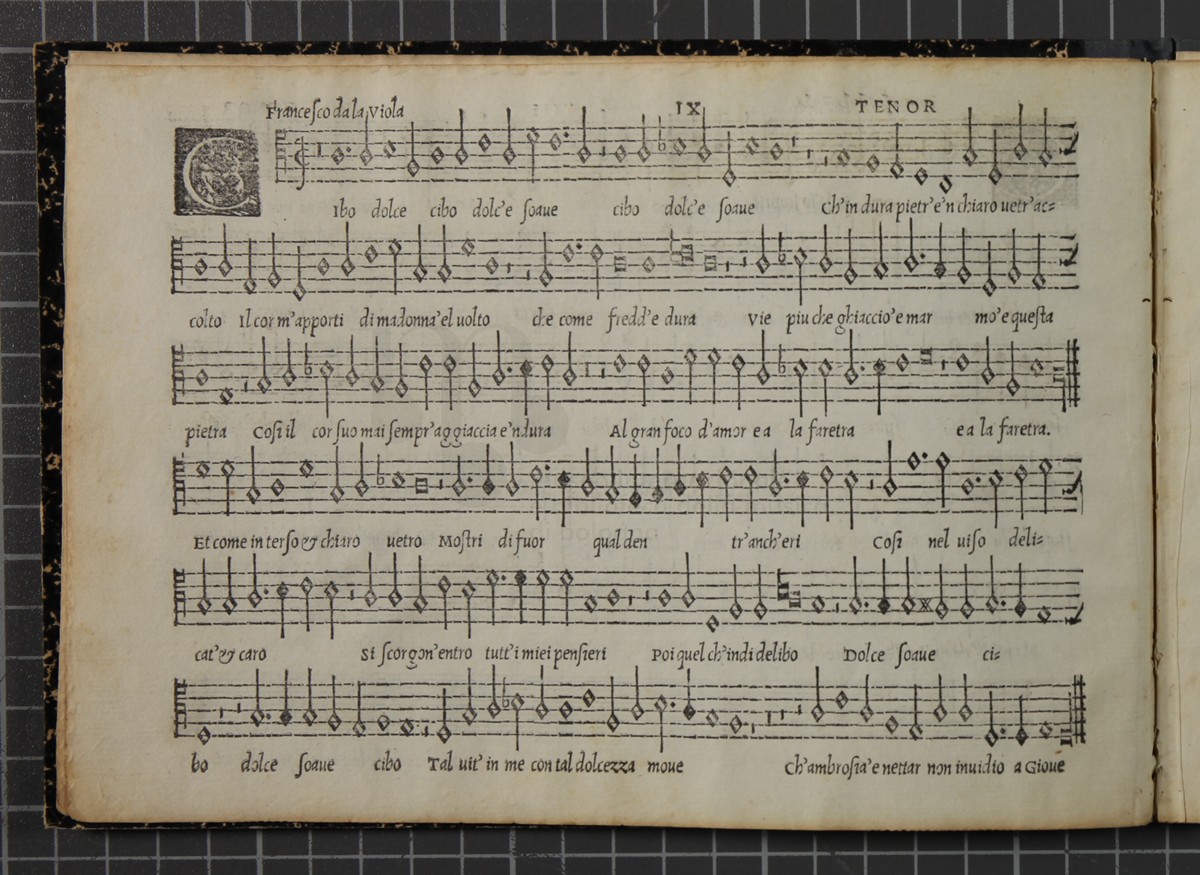 Francesco da la Viola IX TENOR
CIbo dolce cibo dolc'e soaue cibo dolc'e soaue Ch'in dura pietr'e'n chiaro uetr'ac=
colto Il cor m'apporti di madonna'el uolto che come fredd'e dura Vie piu che ghiaccio'e mar mo'e questa
pietra Cosi il cor suo mai sempr'aggiaccia e'ndura Al gran foco d'amor e a la faretra e a la faretra.
Et come in terso & chiaro uetro Mostri di fuor qual den tr'anch'eri Cosi nel uiso deli=
cat'& caro Si scorgon'entro tutt'i miei pensieri Poi quel ch'indi delibo Dolce soaue ci=
bo dolce soaue cibo Tal uit' in me con tal dolcezza moue Ch'ambrosia'e nettar non inuidio a Gioue